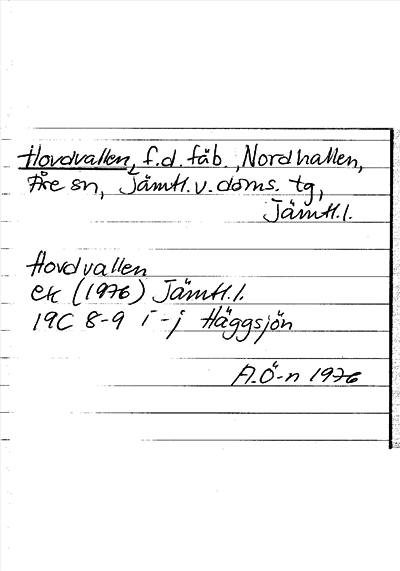 Hovdvallen, f.d. fäb., Nordhallen,
Åre sn, Jämtl. v. doms. tg,
Jämtl. l.
Hovdvallen
ek (1976) Jämtl. l.
19C 8-9 i-j Häggsjön
A.Ö-n 1976